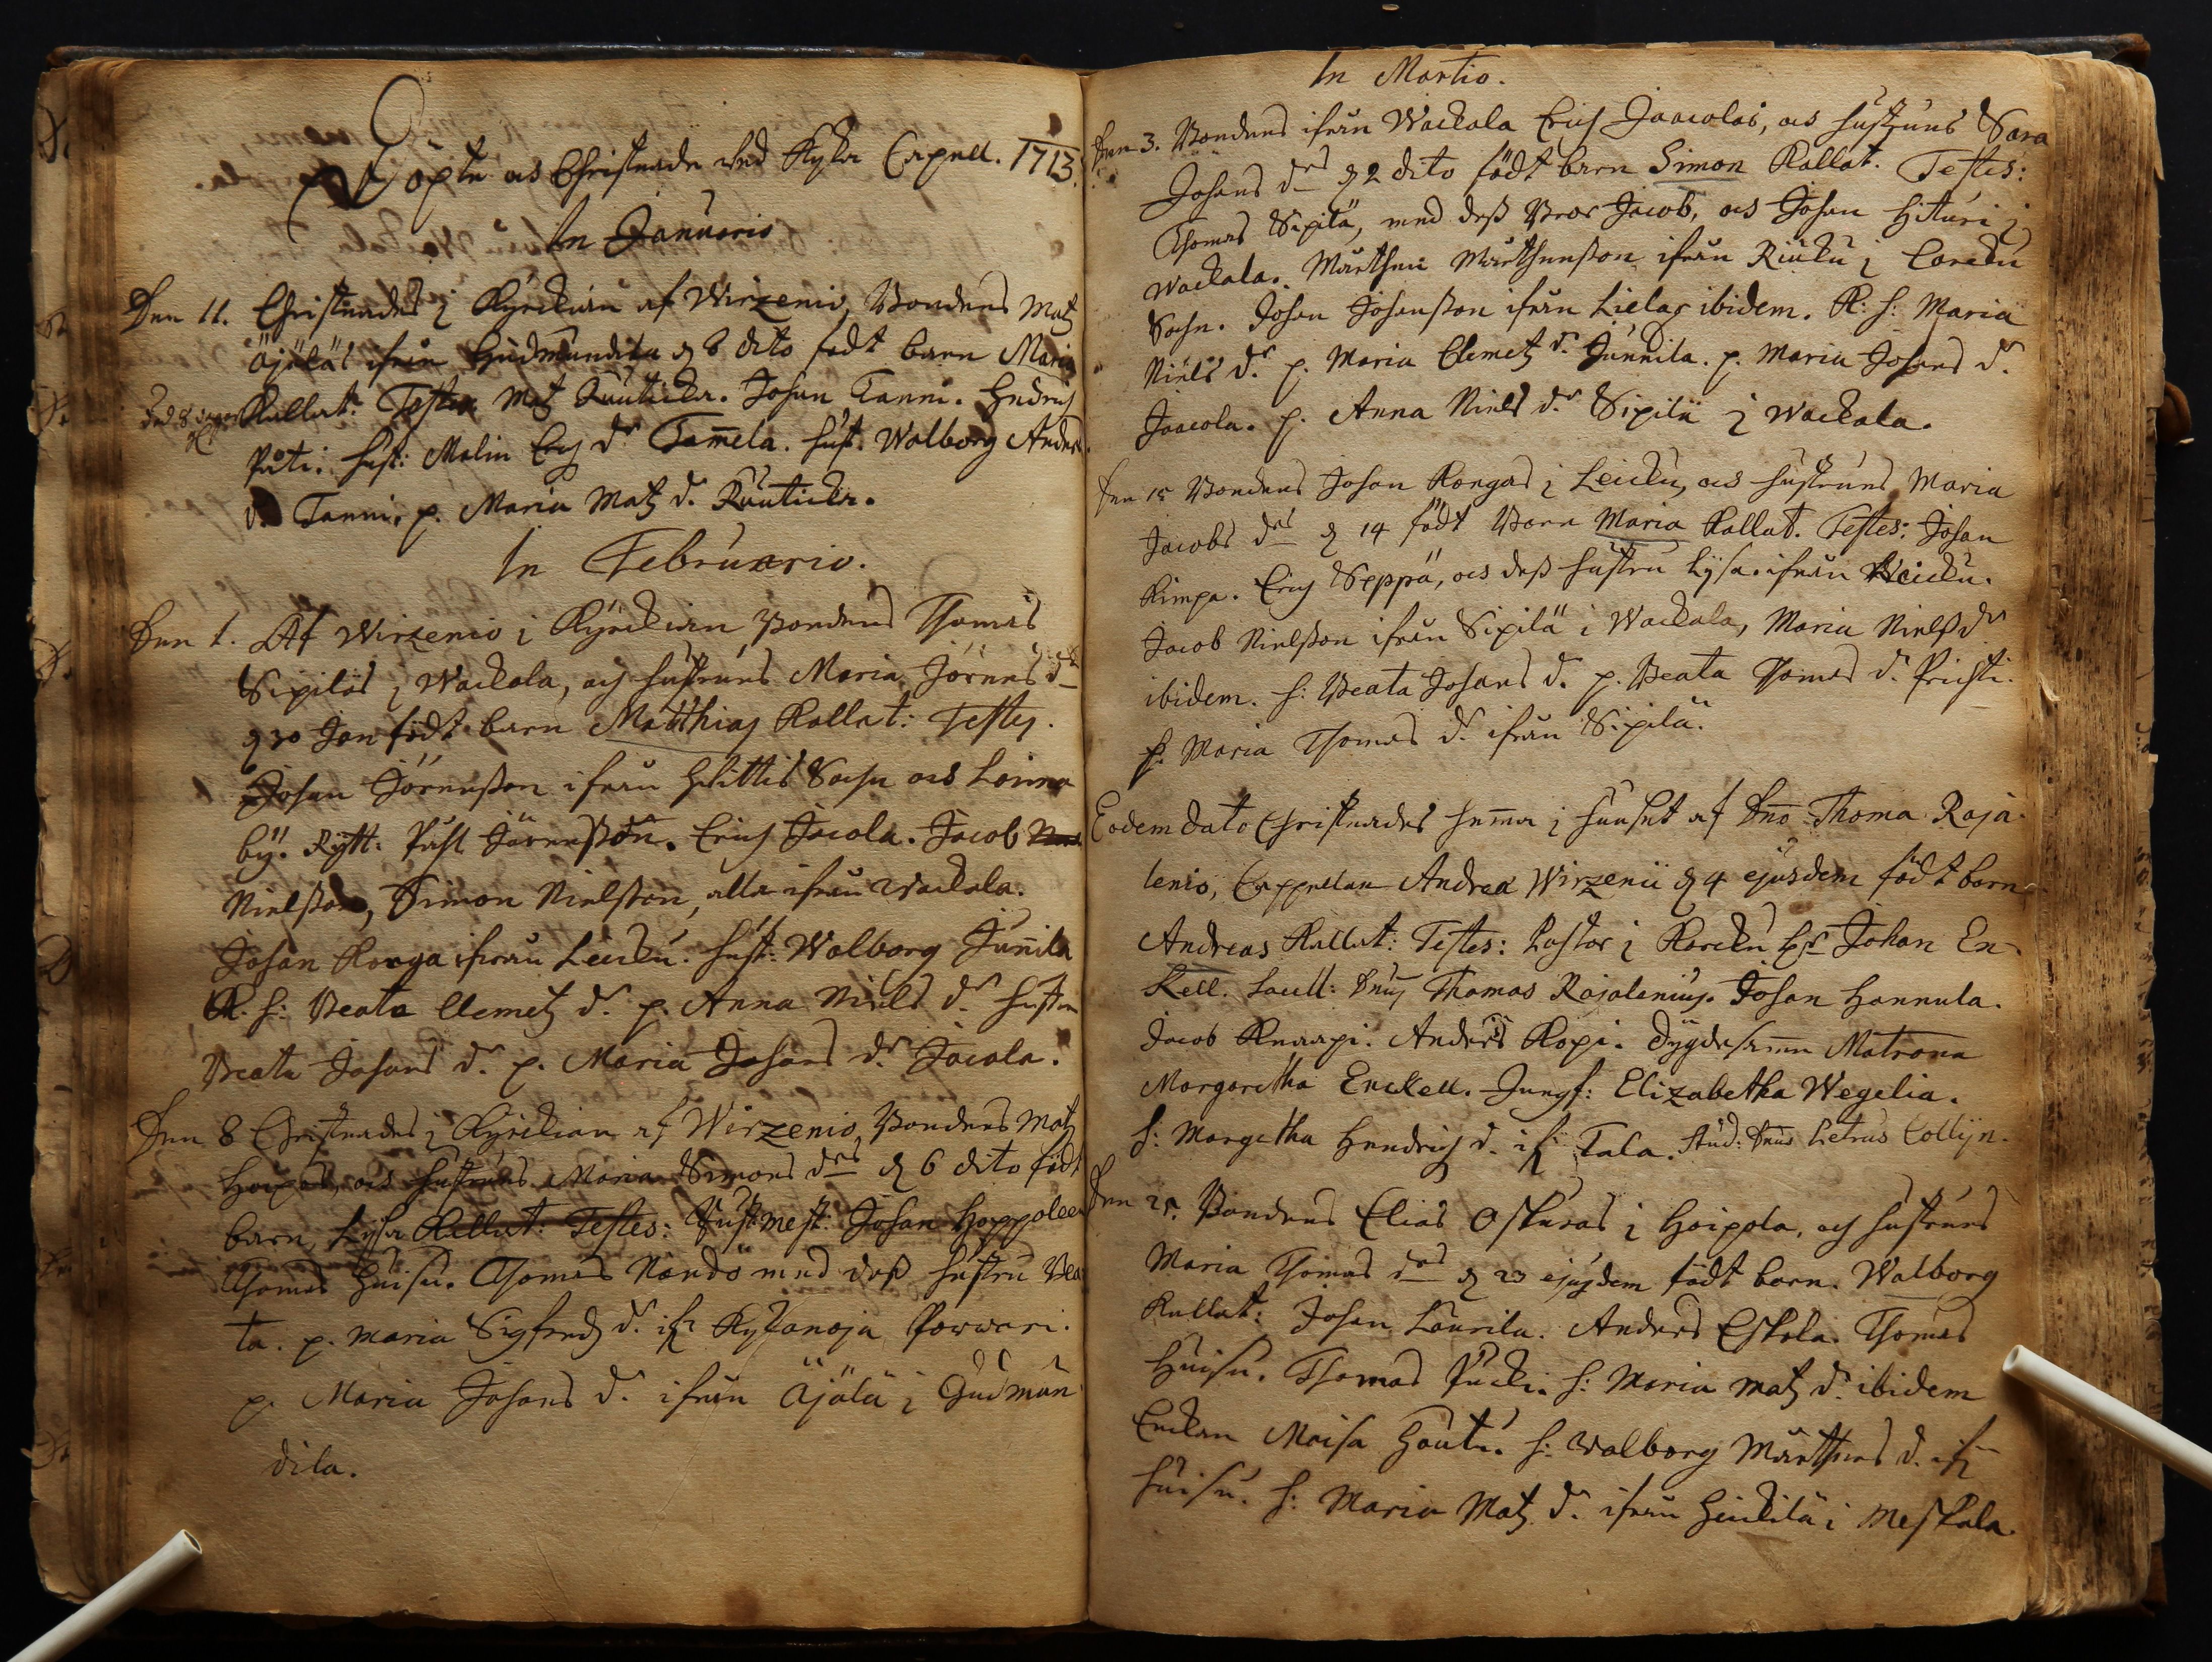 Döpte och Christnade wed Kyrö Capell. 1713.
In Januario
Den 11. Christnades i Kyrckian af Wirzenio, Bondens Matz
Äjäläs ifrån Gudmundila d 8 dito födt barn Maria
Kallat. Testes Matz Knuticka. Johan Tanni. Hendrich
Päti. hust: Malin Erichs dr Tam̄ela. hust. Walborg Anders
dr. Tanni. p. Maria Matz dr. Knuticka.
In Februario.
Den 1. Af Wirzenio i Kyrckian Bondens Thomas
Sipiläs i Wackala, och hustruns Maria Jörens drs
d 30 Jan födt barn Matthias Kallat: Testes.
Johan Jörensson ifrån Hvittis Sochn och Loima
by. Rytt. Påhl Jörensson. Erich Jacola. Jacob
Nielsson, Simon Nielsson, alla ifrån Wackala.
Johan Konga ifrån Leicku. hust. Walborg Jun̄ila
R. h: Beata Clemetz dr. p. Anna Niels dr hustru
Beata Johans dr. p. Maria Johans dr. Jacola.
Den 8 Christnades i Kyrckian af Wirzenio, Bondens Matz
Hoipos, och hustruns Maria Simons drs d 6 dito födt
barn, Lysa Kallat: Testes: Johan Hoppolee
Thomas Huisu. Thomas Nändö med dess hustru Bea
ta. p. Maria Sigfreds dr. ifr. Kylänoja Porwari.
p. Maria Johans dr. ifrån Äjälä i Gudmun
dila.
In Martio.
Den 3. Bondens ifrån Wackala Erich Jaacolas, och hustruns Sara
Johans drs d 2 dito födt barn Simon Kallat. Testes:
Thomas Sipilä, med dess Bror Jacob, och Johan Hituri i
Wackala. Mårthen Mårthensson ifrån Riuku i Carcku
Sochn. Johan Johansson ifrån Lielax ibidem. R: h: Maria
Niels dr. p. Maria Clemetz dr. Junnila. p. Maria Johans dr.
Jaacola. p. Anna Niels dr. Sipilä i Wackala.
Den 15 Bondens Johan Kongas i Leicku, och hustruns Maria
Jacobs drs d 14 födt Barn Maria Kallat. Testes: Johan
Kimpa. Erich Seppä, och dess hustru Lysa ifrån Leicku.
Jacob Nielsson ifrån Sipilä i Wackala, Maria Niels dr
ibidem. h: Beata Johans dr. p. Beata Thomas dr. Prihti.
p. Maria Thomas dr. ifrån Sipilä.
Eodem dato Christnades hem̄a i huuset af Dno Thoma Raja
lenio, Cappellan Andreæ Wirzenii d 4 ejusdem födt barn
Andreas Kallat: Testes: Pastor i Karcku Hr Johan En-
kell. Sacell: Dnus Thomas Rajalenius. Johan Hannula.
Jacob Knaapi. Anders Kopi. Dygdesam̄a Matrona
Margaretha Enckell. Jungf: Elizabetha Wegelia.
h: Margetha Hendrichs dr. ifr Tala. Stud: Dnus Petrus Collijn.
Den 25. Bondens Elias Oskaras i Hoipola, och hustruns
Maria Thomas drs d 23 ejusdem födt barn. Walborg
Kallat: Johan Laurila. Anders Eskola. Thomas
Huisu. Thomas Pucki. h: Maria Matz dr. ibidem
Enckan Maisa Hautu. h: Walborg Mårthens dr. ifr
Huisu. h: Maria Matz dr. ifrån Heickilä i Meskala.